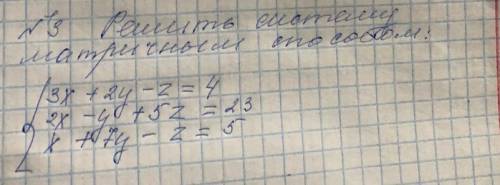 №3 Решить систему
матричным способом:
3x + 2y - z = 4
2x - y + 5z = 23
x + 7y - z = 5